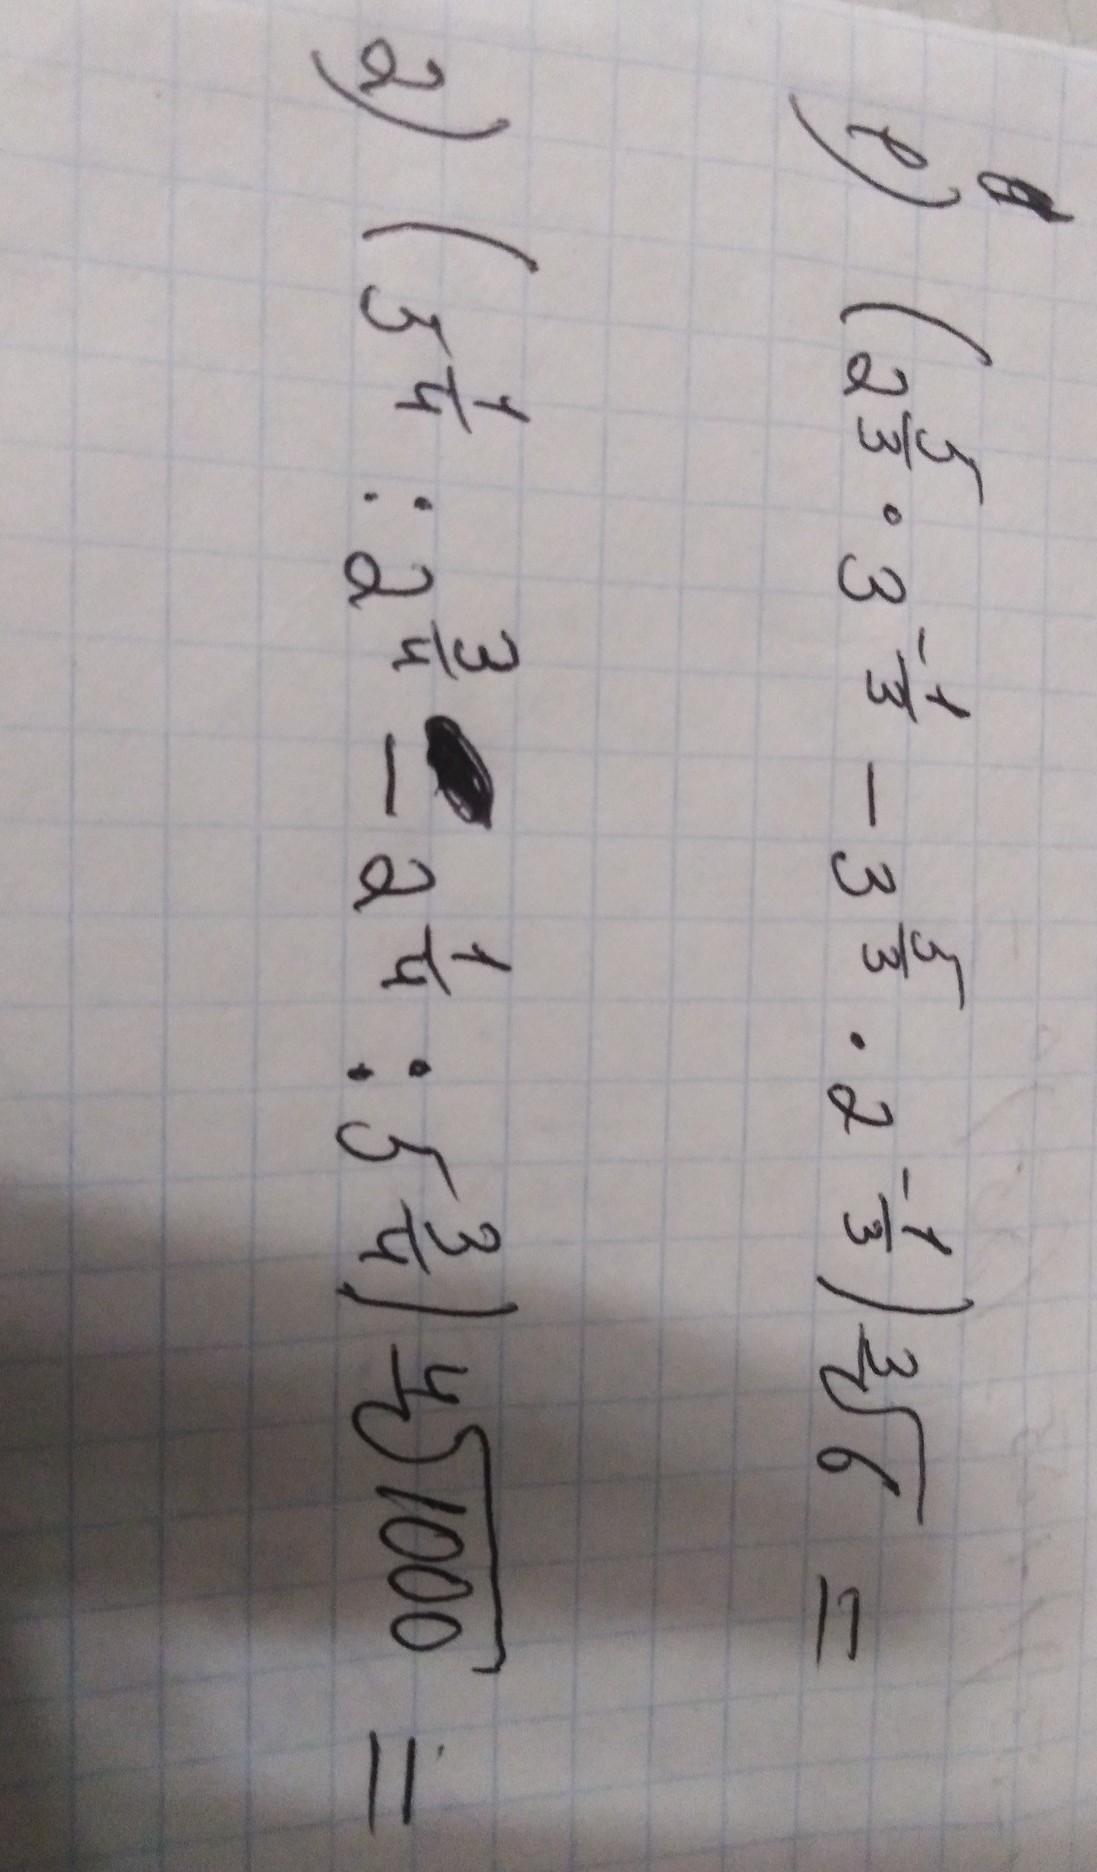 1) (2^{5/3} · 3^{-1/3} - 3^{5/3} · 2^{-1/3}) ∛6 =
2) (5^{1/4} : 2^{3/4} - 2^{1/4} : 5^{3/4}) ∜1000 =